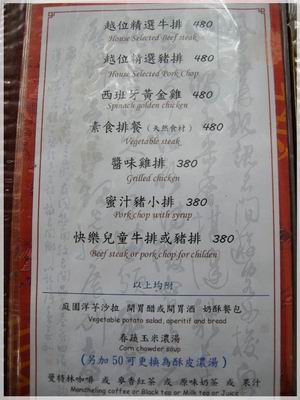 越位精選牛排 480
House Selected Beef steak
越位精選豬排 480
House Selected Pork Chop
西班牙黃金雞 480
Spinach golden chicken
素食排餐(天然食材) 480
Vegetable steak
醬味雞排 380
Grilled chicken
蜜汁豬小排 380
Pork chop with syrup
快樂兒童牛排或豬排 380
Beef steak or pork chop for childen
以上均附
庭園洋芋沙拉 開胃醋或開胃酒 奶酥餐包
Vegetable potato salad, aperitif and bread
春蔬玉米濃湯
Corn chowder soup
(另加50可更換為酥皮濃湯)
曼特林咖啡 或 麥香紅茶 或 原味奶茶 或 果汁
Mancheling coffee or Black tea or Milk tea or Juice